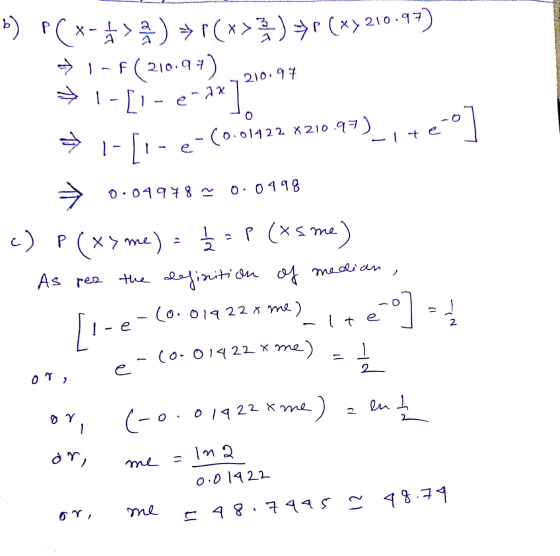 b) P(x - 1/λ > 2/λ) ⇒ P(x > 3/λ) ⇒ P(x > 210.97)
⇒ 1 - F(210.97)
⇒ 1 - [1 - e^(-λx)]_0^210.97
⇒ 1 - [1 - e^-(0.01422 × 210.97) - 1 + e^-0]
⇒ 0.04978 ≃ 0.0498
c) P(x > me) = 1/2 = P(x ≤ me)
As per the definition of median,
[1 - e^-(0.01422 × me) - 1 + e^-0] = 1/2
or, e^-(0.01422 × me) = 1/2
or, (-0.01422 × me) = ln 1/2
or, me = ln 2 / 0.01422
or, me = 48.7445 ≃ 48.74